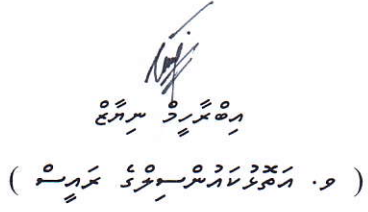 އިބްރާހީމް ނިޔާޒް
( ވ. އަތޮޅުކައުންސިލްގެ ރައީސް )